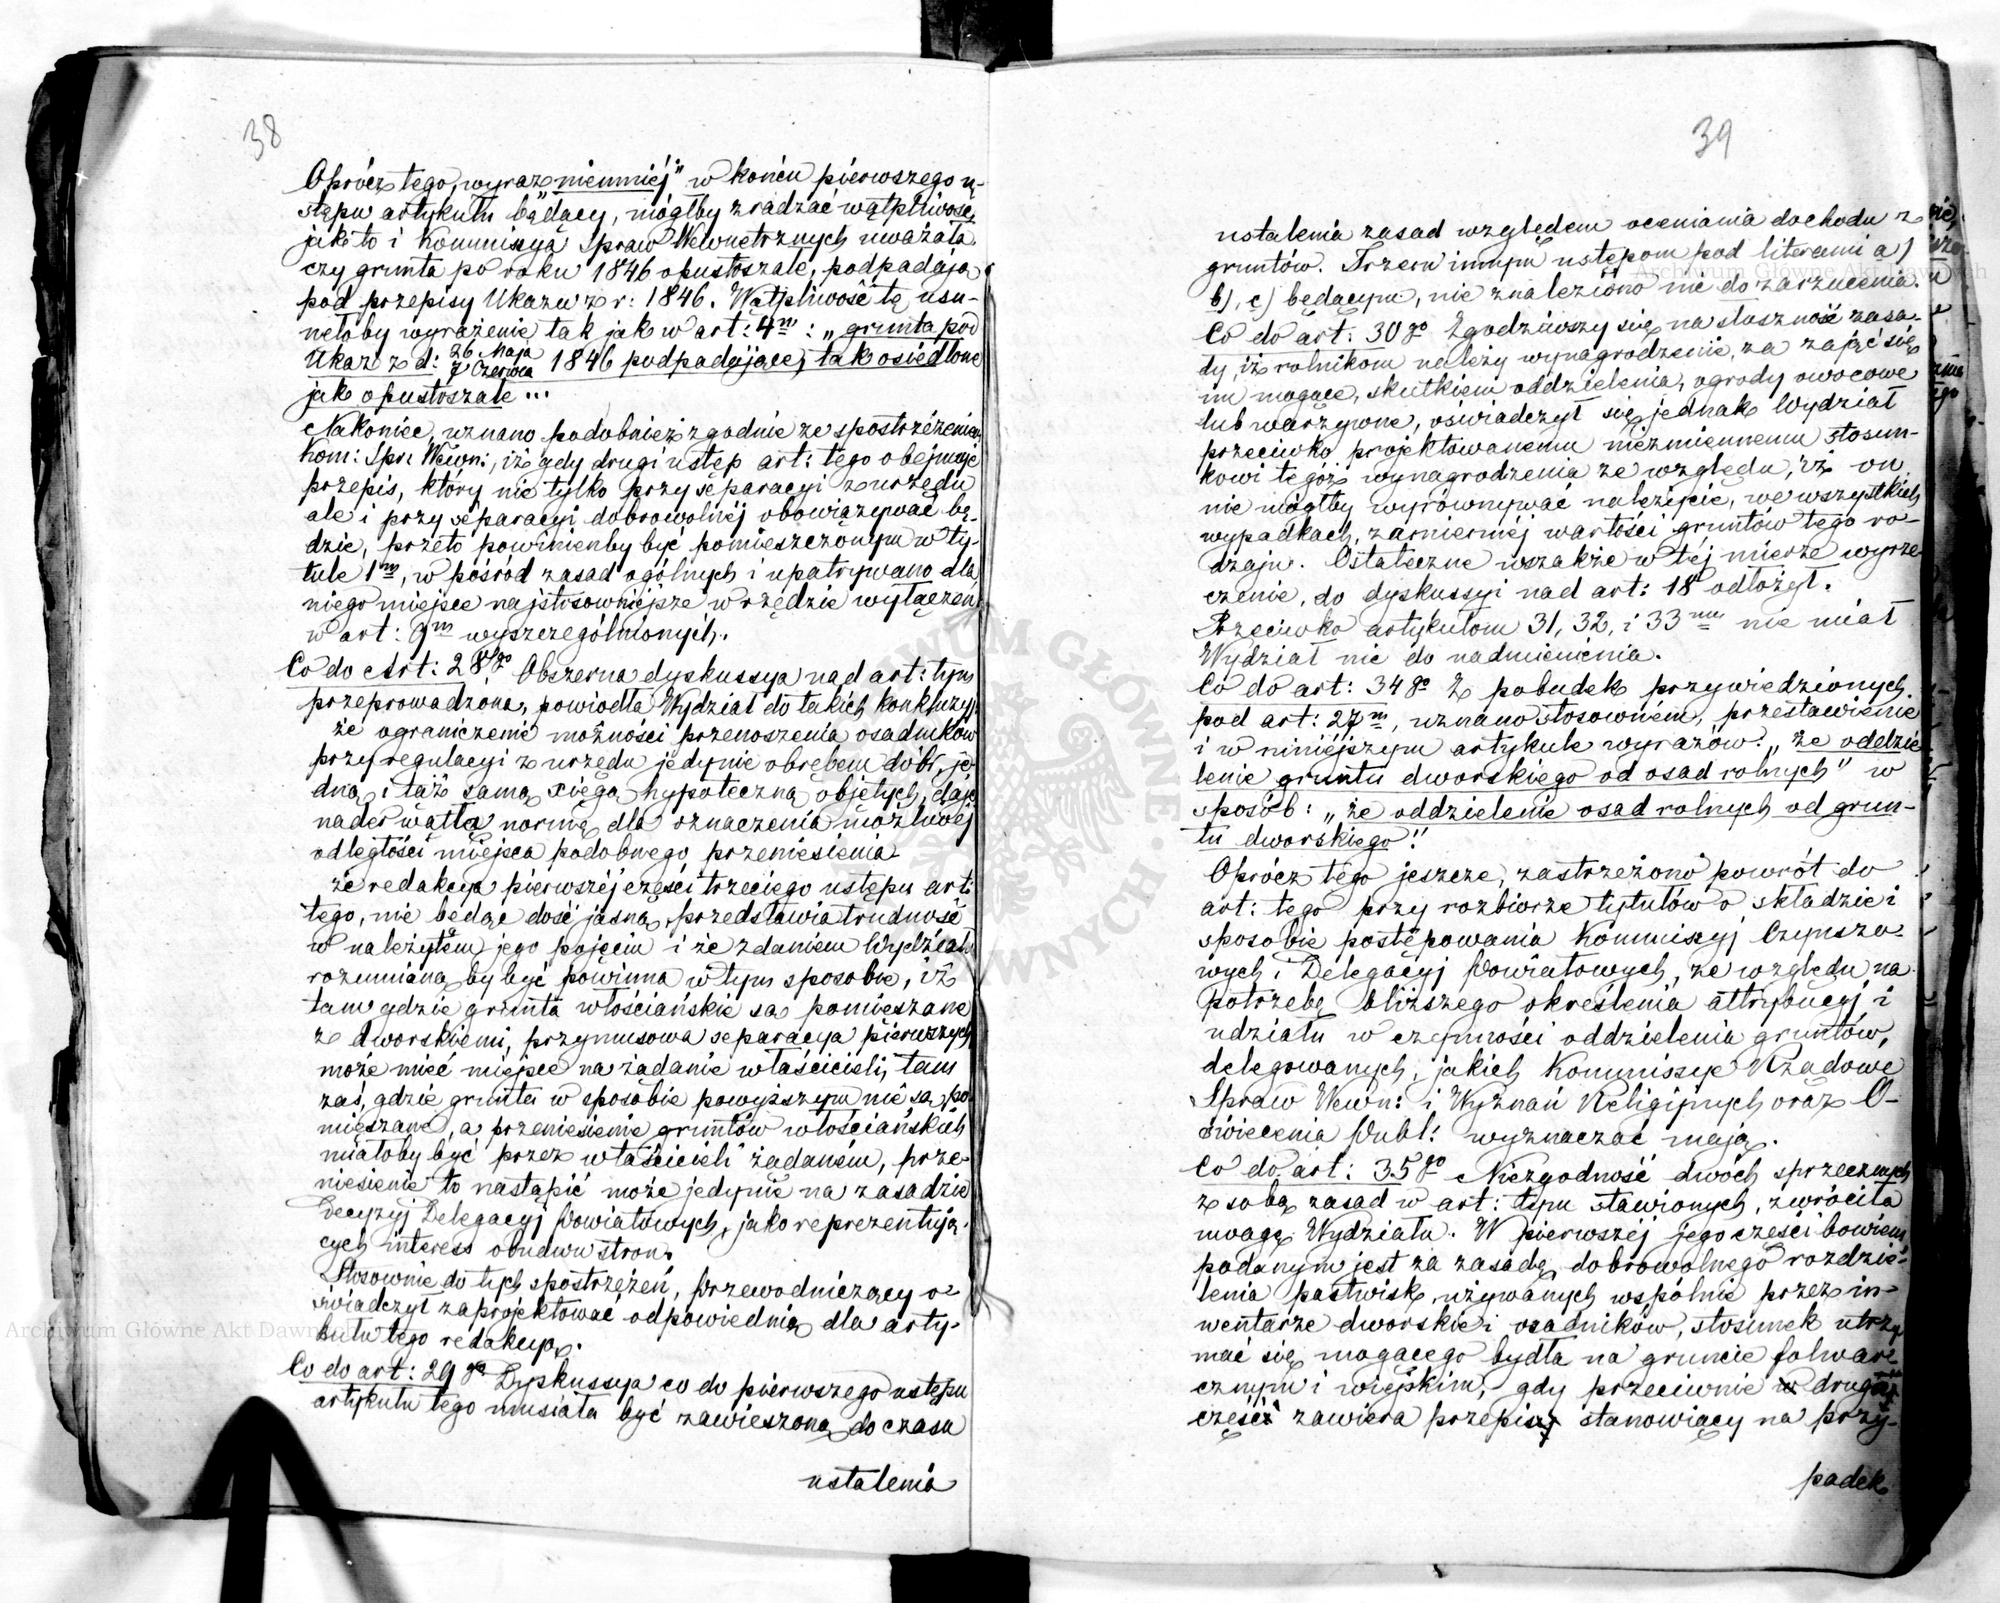 38
Oprócz tego, wyraz „niemniéj" w końcu piérwszego u-
stępu artykułu będący, mógłby zradzać wątpliwość,
jak to i Kommissya Spraw Wewnętrznych uważała,
czy grunta po roku 1846 opustoszałe, podpadają
pod przepisy Ukazu z r: 1846. Wątpliwość tę usu-
nęłoby wyrażenie tak jak w art: 4m: „grunta pod
Ukaz z d: 26 Maja / 7 Czerwca 1846 podpadające, tak osiédlone
jak opustoszałe...
Nakoniec, uznano podobnież zgodnie ze spostrzeżeniem
Kom: Spr: Wewn:, iż gdy drugi ustęp art: tego obejmuje
przepis, który nie tylko przy separacyi z urzędu
ale i przy separacyi dobrowolnéj obowiązywać bę-
dzie, przeto powinienby być pomieszczonym w ty-
tule 1m, w pośród zasad ogólnych i upatrywano dla
niego miejsce najstosowniejsze w rzędzie wyłączeń
w art: 9m wyszczególnionych.
Co do Art: 28go Obszerna dyskussya nad art: tym
przeprowadzona, powiodła Wydział do takich konkluzyj:
że ograniczenie możności przenoszenia osadników
przy regulacyi z urzędu jedynie obrębem dóbr, je-
dną i taż samą xięgą hypoteczną objętych, daje
nader wątłą normę dla oznaczenia możliwéj
odległości miejsca podobnego przeniesienia.
że redakcya piérwszéj części trzeciego ustępu art:
tego, nie będąc dość jasną, przedstawia trudność
w należytem jego pojęciu i że zdaniem Wydziału
rozumianą by być powinna w tym sposobie, iż
tam gdzie grunta włościańskie są pomięszane
z dworskiemi, przymusowa separacya piérwszych
może mieć miejsce na żądanie właścicieli, tam
zaś, gdzie grunta w sposobie powyższym nie są po-
mięszane, a przeniesienie gruntów włościańskich
miałoby być przez właścicieli żądaném, prze-
niesienie to nastąpić może jedynie na zasadzie
decyzyj Delegacyj Powiatowych, jako reprezentują-
cych interess obudwu stron.
Stosownie do tych spostrzeżeń, Przewodniczący o-
świadczył zaprojektować odpowiednią dla arty-
kułu tego redakcyą.
Co do art: 29go Dyskussya co do piérwszego ustępu
artykułu tego musiała być zawieszoną do czasu
ustalenia
39
ustalenia zasad względem oceniania dochodu z
gruntów. Trzem innym ustępom pod literami a)
b), c) będącym, nie znaleziono nic do zarzucenia.
Co do art: 30go Zgodziwszy się na słuszność zasa-
dy, iż rolnikom należy wynagrodzenie, za zająć się
im mogące, skutkiem oddzielenia, ogrody owocowe
lub warzywne, oświadczył się jednak Wydział
przeciwko projektowanemu niezmiennemu stosun-
kowi tegoż wynagrodzenia ze względu, iż on
nie mógłby wyrównywać należycie, we wszystkich
wypadkach, zamiennéj wartości gruntów tego ro-
dzaju. Ostateczne wszakże w téj mierze wyrze-
czenie, do dyskussyi nad art: 18 odłożył.
Przeciwko artykułom 31, 32, i 33mu nie miał
Wydział nic do nadmienienia.
Co do art: 34go Z pobudek przywiedzionych
pod art: 27m, uznano stosowném, przestawienie
i w niniéjszym artykule wyrazów: „że oddzie-
lenie gruntu dworskiego od osad rolnych" w
sposób: „że oddzielenie osad rolnych od grun-
tu dworskiego".
Oprócz tego jeszcze, zastrzeżono powrót do
art: tego przy rozbiorze tytułów o składzie i
sposobie postępowania Kommissyj Czynszo-
wych i Delegacyj Powiatowych, ze względu na
potrzebę bliższego określenia attrybucyj i
udziału w czynności oddzielenia gruntów,
delegowanych, jakich Kommissye Rządowe
Spraw Wewn: i Wyznań Religijnych oraz O-
świecenia Publ: wyznaczać mają.
Co do art: 35go Niezgodność dwóch sprzecznych
z sobą zasad w art: tym stawionych, zwróciła
uwagę Wydziału. W piérwszéj jego części bowiem
podanym jest za zasadę dobrowolnego rozdzie-
lenia pastwisk, używanych wspólnie przez in-
wentarze dworskie i osadników, stosunek utrzy-
mać się mogącego bydła na gruncie folwar-
cznym i wiejskim, gdy przeciwnie druga
część zawiera przepis stanowiący na przy-
padek
Archiwum Główne Akt Dawnych
Archiwum Główne Akt Dawn